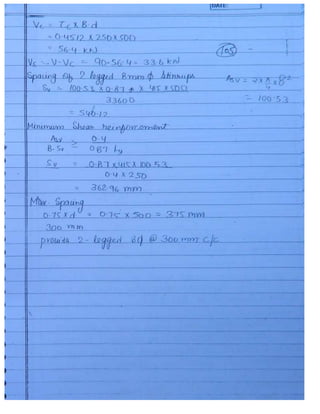 DATE:
Vc = τc × B·d
= 0.4512 × 250 × 500
= 56.4 kN
Vs = V - Vc = 90 - 56.4 = 33.6 kN
Spacing of 2 legged 8mm ϕ stirrups
Asv = 2 × π/4 × 8²
= 100.53
Sv = 100.53 × 0.87 × 415 × 500
33600
= 540.12
Minimum Shear reinforcement
Asv/B·Sv ≥ 0.4/0.87 fy
Sv = 0.87 × 415 × 100.53
0.4 × 250
= 362.96 mm
Max Spacing
0.75 × d = 0.75 × 500 = 375 mm
300 mm
provide 2-legged 8ϕ @ 300 mm c/c